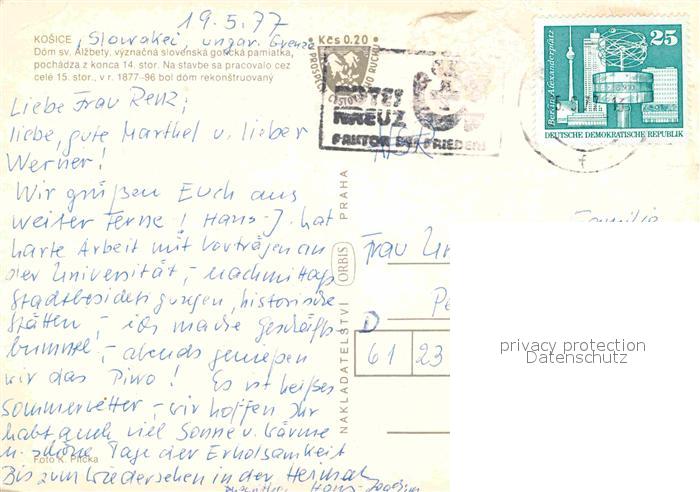 19.5.77
KOŠICE, Slowakei, ungar. Grenze
Dóm sv. Alžbety, význačná slovenská gotická pamiatka,
pochádza z konca 14. stor. Na stavbe sa pracovalo cez
celé 15. stor., v r. 1877-96 bol dóm rekonštruovaný
Kčs 0.20
Liebe Frau Renz;
liebe, gute Marthel u. lieber
Werner!
Wir grüßen Euch aus
weiter Ferne! Hans-J. hat
harte Arbeit mit Vorträgen an
der Universität, - nachmittags
Stadtbesichtigungen, historische
Stätten, - ich mache Geschäfts
bummel, - abends genießen
wir das Pivo! Es ist heißes
Sommerwetter - wir hoffen Ihr
habt auch viel Sonne u. Wärme
u. schöne Tage der Erholsamkeit
Bis zum Wiedersehen in der Heimat
Hans-Joachim
Foto K. Plicka
NAKLADATELSTVÍ ORBIS PRAHA
ROTES
KREUZ
FAKTOR DES FRIEDENS
25
Berlin, Alexanderplatz
DEUTSCHE DEMOKRATISCHE REPUBLIK
Familie
Frau
D
61 23
privacy protection
Datenschutz